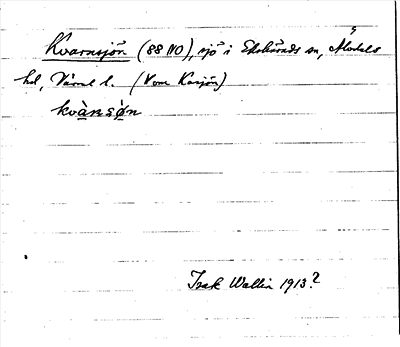 Kvarnsjön (88 NO), sjö i Ekshärads sn, Älvdals
hd, Värml. l. (Vom Kasjön)
kvànsøn
Isak Wallin 1913?